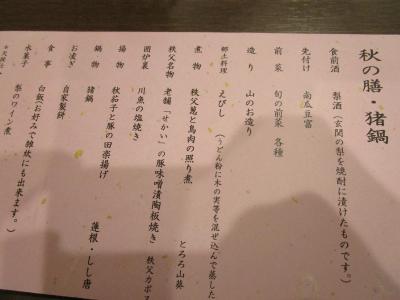 秋の膳・猪鍋
食前酒　梨酒（玄関の梨を焼酎に漬けたものです。）
先付け　南瓜豆富
前菜　旬の前菜　各種
造り　山のお造り
郷土料理　えびし　（うどん粉に木の実等を混ぜ込んで蒸した
煮物　秩父葱と鳥肉の照り煮　とろろ山葵
秩父名物　老舗「せかい」の豚味噌漬陶板焼き　秩父カボス
囲炉裏　川魚の塩焼き
揚物　秋茄子と豚の田楽揚げ　蓮根・しし唐
鍋物　猪鍋
お凌ぎ　自家製餅
食事　白飯（お好みで雑炊にも出来ます。）
水菓子　梨のワイン煮